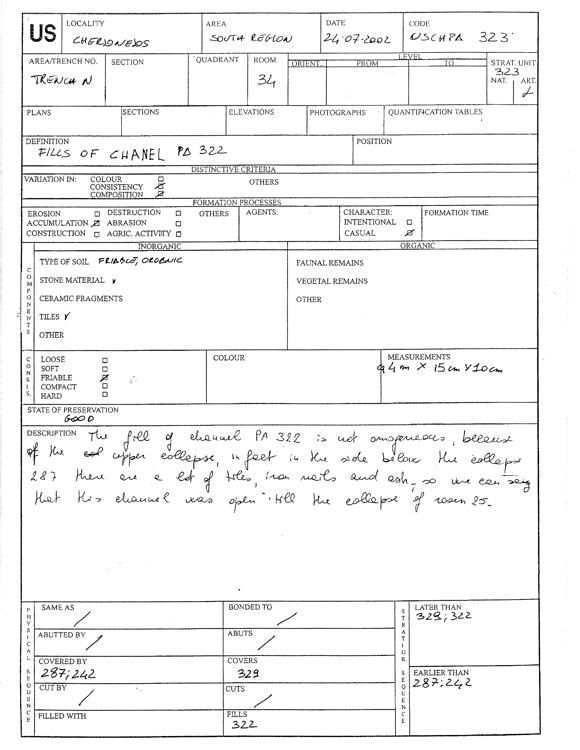 US
LOCALITY
CHERSONESOS
AREA
SOUTH REGION
DATE
24.07.2002
CODE
USCHPA 323
AREA/TRENCH NO.
TRENCH N
SECTION
QUADRANT
ROOM
34
LEVEL
ORIENT. FROM TO
STRAT. UNIT
323
NAT. ART.
PLANS
SECTIONS
ELEVATIONS
PHOTOGRAPHS
QUANTIFICATION TABLES
DEFINITION
FILLS OF CHANEL PA 322
POSITION
DISTINCTIVE CRITERIA
VARIATION IN: COLOUR
CONSISTENCY
COMPOSITION
OTHERS
FORMATION PROCESSES
EROSION DESTRUCTION OTHERS
ACCUMULATION ABRASION
CONSTRUCTION AGRIC. ACTIVITY
AGENTS:
CHARACTER:
INTENTIONAL
CASUAL
FORMATION TIME
COMPONENTS
INORGANIC
TYPE OF SOIL FRIABLE, ORGANIC
STONE MATERIAL v
CERAMIC FRAGMENTS
TILES v
OTHER
ORGANIC
FAUNAL REMAINS
VEGETAL REMAINS
OTHER
CONSIS.
LOOSE
SOFT
FRIABLE
COMPACT
HARD
COLOUR
MEASUREMENTS
4m X 15cm X 10cm
STATE OF PRESERVATION
GOOD
DESCRIPTION The fill of channel PA 322 is not omogeneous, because
of the upper collapse, in fact in the side below the collapse
287 there are a lot of tiles, iron nails and ash, so we can say
that this channel was open till the collapse of room 25.
PHYSICAL SEQUENCE
SAME AS
BONDED TO
ABUTTED BY
ABUTS
COVERED BY
287; 242
COVERS
329
CUT BY
CUTS
FILLED WITH
FILLS
322
STRATIGR. SEQUENCE
LATER THAN
329; 322
EARLIER THAN
287; 242